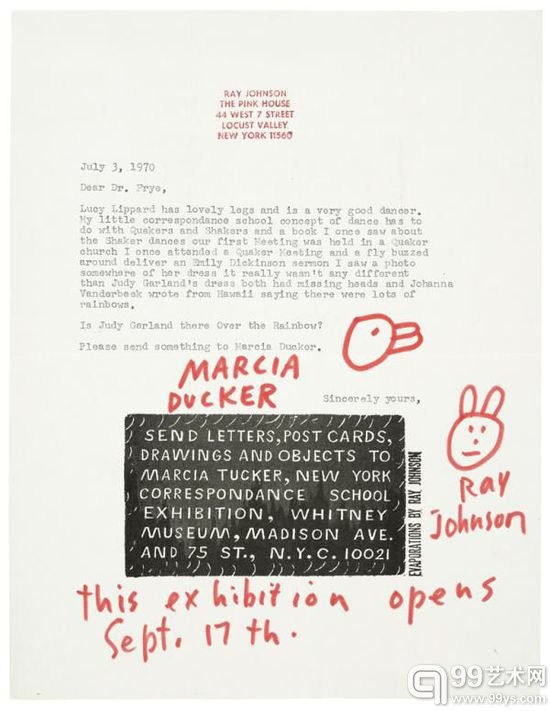 RAY JOHNSON
THE PINK HOUSE
44 WEST 7 STREET
LOCUST VALLEY
NEW YORK 11560
July 3, 1970
Dear Dr. Frye,
Lucy Lippard has lovely legs and is a very good dancer.
My little correspondance school concept of dance has to
do with Quakers and Shakers and a book I once saw about
the Shaker dances our first Meeting was held in a Quaker
church I once attended a Quaker Meeting and a fly buzzed
around deliver an Emily Dickinson sermon I saw a photo
somewhere of her dress it really wasn't any different
than Judy Garland's dress both had missing heads and Johanna
Vanderbeek wrote from Hawaii saying there were lots of
rainbows.
Is Judy Garland there Over the Rainbow?
Please send something to Marcia Ducker.
MARCIA
DUCKER
Sincerely yours,
SEND LETTERS, POST CARDS,
DRAWINGS AND OBJECTS TO
MARCIA TUCKER, NEW YORK
CORRESPONDANCE SCHOOL
EXHIBITION, WHITNEY
MUSEUM, MADISON AVE.
AND 75 ST., N.Y.C. 10021
EVAPORATIONS BY RAY JOHNSON
Ray
Johnson
this exhibition opens
Sept. 17th.
99艺术网
www.99ys.com